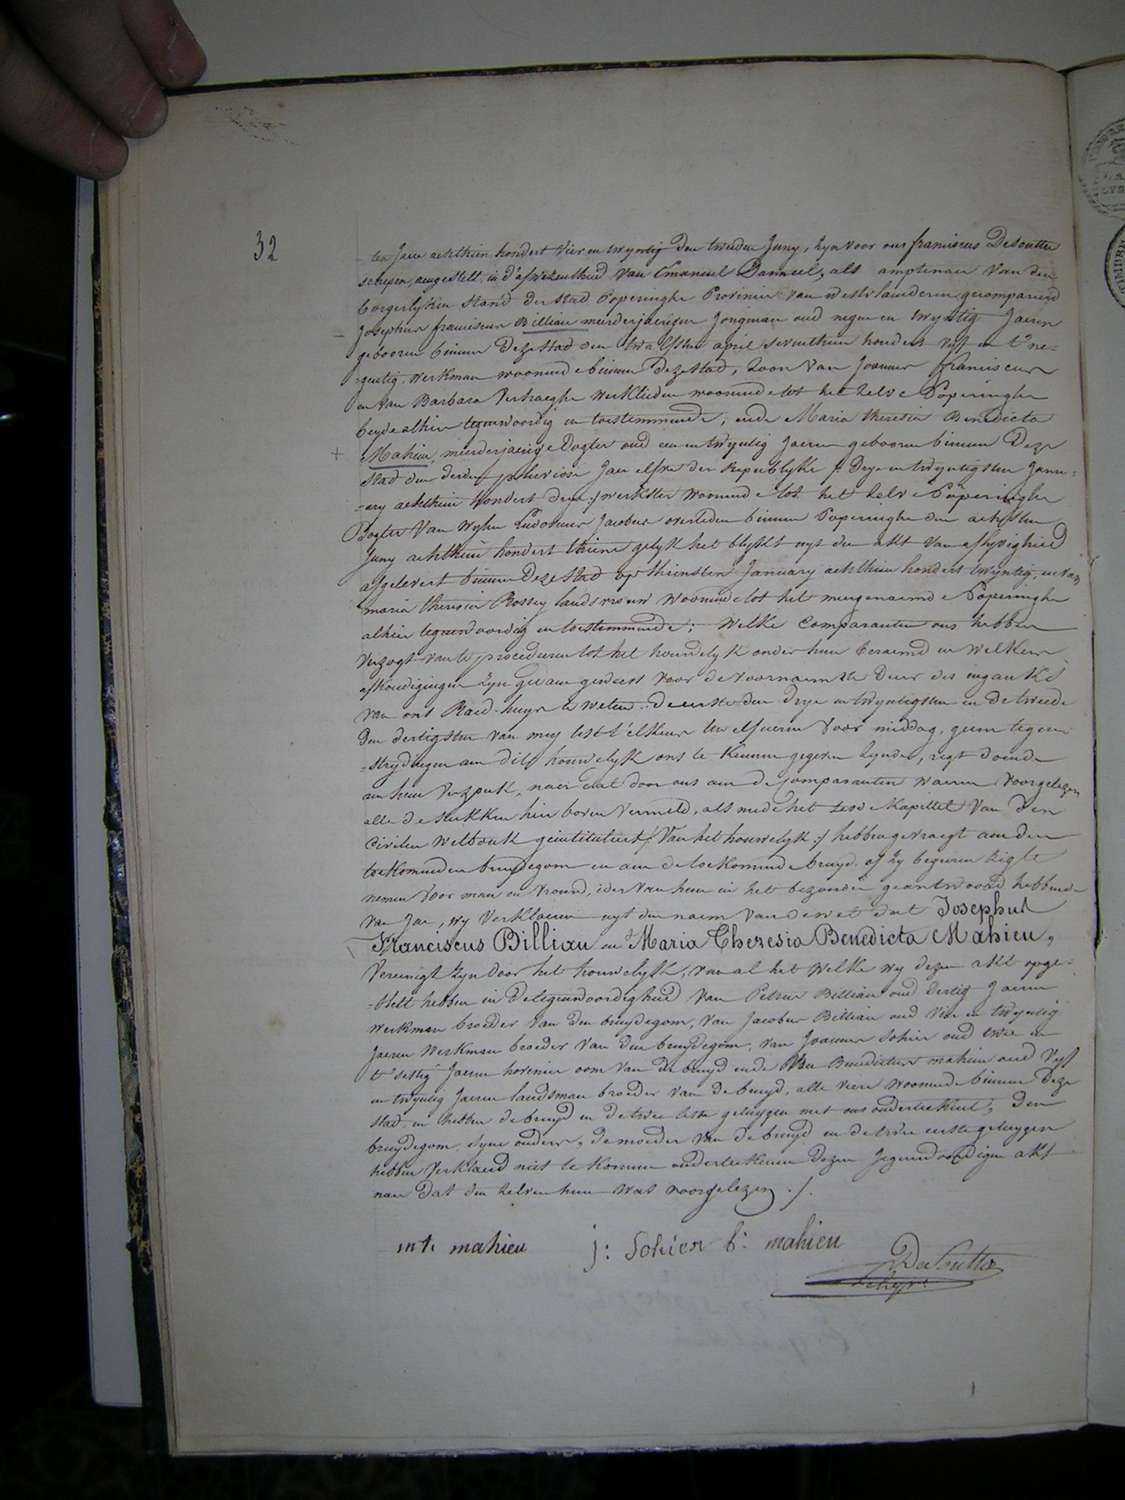 32
ten Jaere achthien hondert vier en twyntig den tweeden Juny, zyn voor ons franciscus Desoutter
schepen, aengestelt in d'afwezentheid van Emanuel Danneel, als amptenaer van den
borgerlyken stand der stad Poperinghe Provincie van westvlaenderen gecompareerd
Josephus franciscus Billiau meerderjaerigen Jongman oud negen en twyntig Jaeren
gebooren binnen deze stad den twalfsten april seventhien hondert vyf en t'ne-
-gentig, werkman woonende binnen deze stad, zoon van Joannes franciscus
en van Barbara Verhaeghe werklieden woonende tot het zelve Poperinghe
beyde alhier tegenwoordig en toestemmende, ende Maria theresia Benedicta
+ Mahieu, meerderjaerige Dogter oud een en twyntig Jaeren gebooren binnen deze
stad den derden pluviose Jaer elfve der Republyke /: drye en twyntigsten Janu-
-ary achthien hondert drye :/ werkster woonende tot het zelve Poperinghe
Dogter van wylen Ludovicus Jacobus overleden binnen Poperinghe den achsten
Juny achthien hondert thiene gelyk het blykt uyt den akt van aflyvigheid
afgelevert binnen deze stad op thiensten January achthien hondert twyntig, en van
maria theresia Rossey landsvrouw woonende tot het meergenaemde Poperinghe
alhier tegenwoordig en toestemmende; Welke Comparanten ons hebben
verzogt van te procederen tot het houwelyk onder hun beraemd en welkers
afkondigingen zyn gedaen geweest voor de voornaemste deur des inganks
van ons Raed-huys te weten: de eerste den drye en twyntigsten en de tweede
den dertigsten van mey lest t'elkens ten elf ueren voor middag, geen tegen-
-strydingen aen dit houwelyk ons te kennen gegeven zynde, regt doende
aen hun verzoek, naer dat door ons aen de Comparanten waeren voorgelezen
alle de stukken hier boven vermeld, als mede het zesde Kapittel van den
Civilen wetboek geintituleert /: van het houwelyk :/ hebben gevraegt aen den
toekomenden bruydegom en aen de toekomende bruyd, of zy begeiren zig te
nemen voor man en vrouw, ider van hun in het bezonder geantwoord hebbende
van Jae, wy verklaeren uyt den naem van de wet dat Josephus
Franciscus Billiau en Maria Theresia Benedicta Mahieu,
vereenigt zyn door het houwelyk, van al het welke wy dezen akt opge-
-stelt hebben in de tegenwoordigheid van Petrus Billiau oud dertig Jaeren
werkman broeder van den bruydegom, van Jacobus Billiau oud vier en twyntig
Jaeren werkman broeder van den bruydegom, van Joannes Sohier oud twee en
t'sestig Jaeren hovenier oom van de bruyd ende Benedictus mahieu oud vyf
en twyntig Jaeren landsman broeder van de bruyd, alle viere woonende binnen deze
stad, en hebben de bruyd en de twee leste getuygen met ons onderteekent; den
bruydegom, zyne ouders, de moeder van de bruyd en de twee eerste getuygen
hebben verklaerd niet te konnen onderteekenen dezen tegenwoordigen akt
naer dat den zelven hun was voorgelezen ./.
m t. mahieu j: Sohier b: mahieu
DeSoutter
schepen